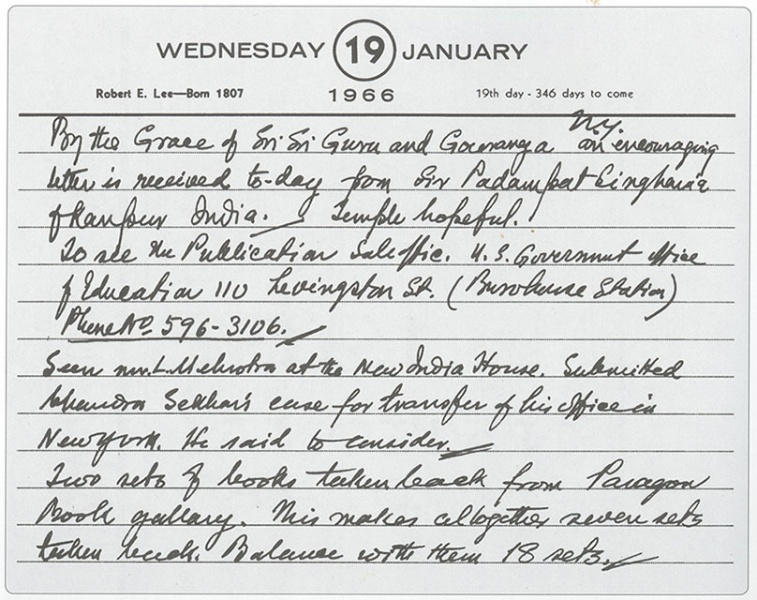 WEDNESDAY 19 JANUARY
Robert E. Lee—Born 1807
1966
19th day - 346 days to come
N.Y.
By the Grace of Sri Sri Guru and Gouranga an encouraging
letter is received to-day from Sir Padampat Singhania
of Kanpur India. Temple hopeful.
To see the Publication Sale office. U.S. Government office
of Education 110 Levingston St. (Burohouse Station)
Phone No. 596-3106.
Seen mr. L. Mehrotra at the New India House. Submitted
Chandra Sekhar's case for transfer of his office in
New York. He said to consider
Two sets of books taken back from Paragon
Book gallary. This makes altogether seven sets
taken back. Balance with them 18 sets.